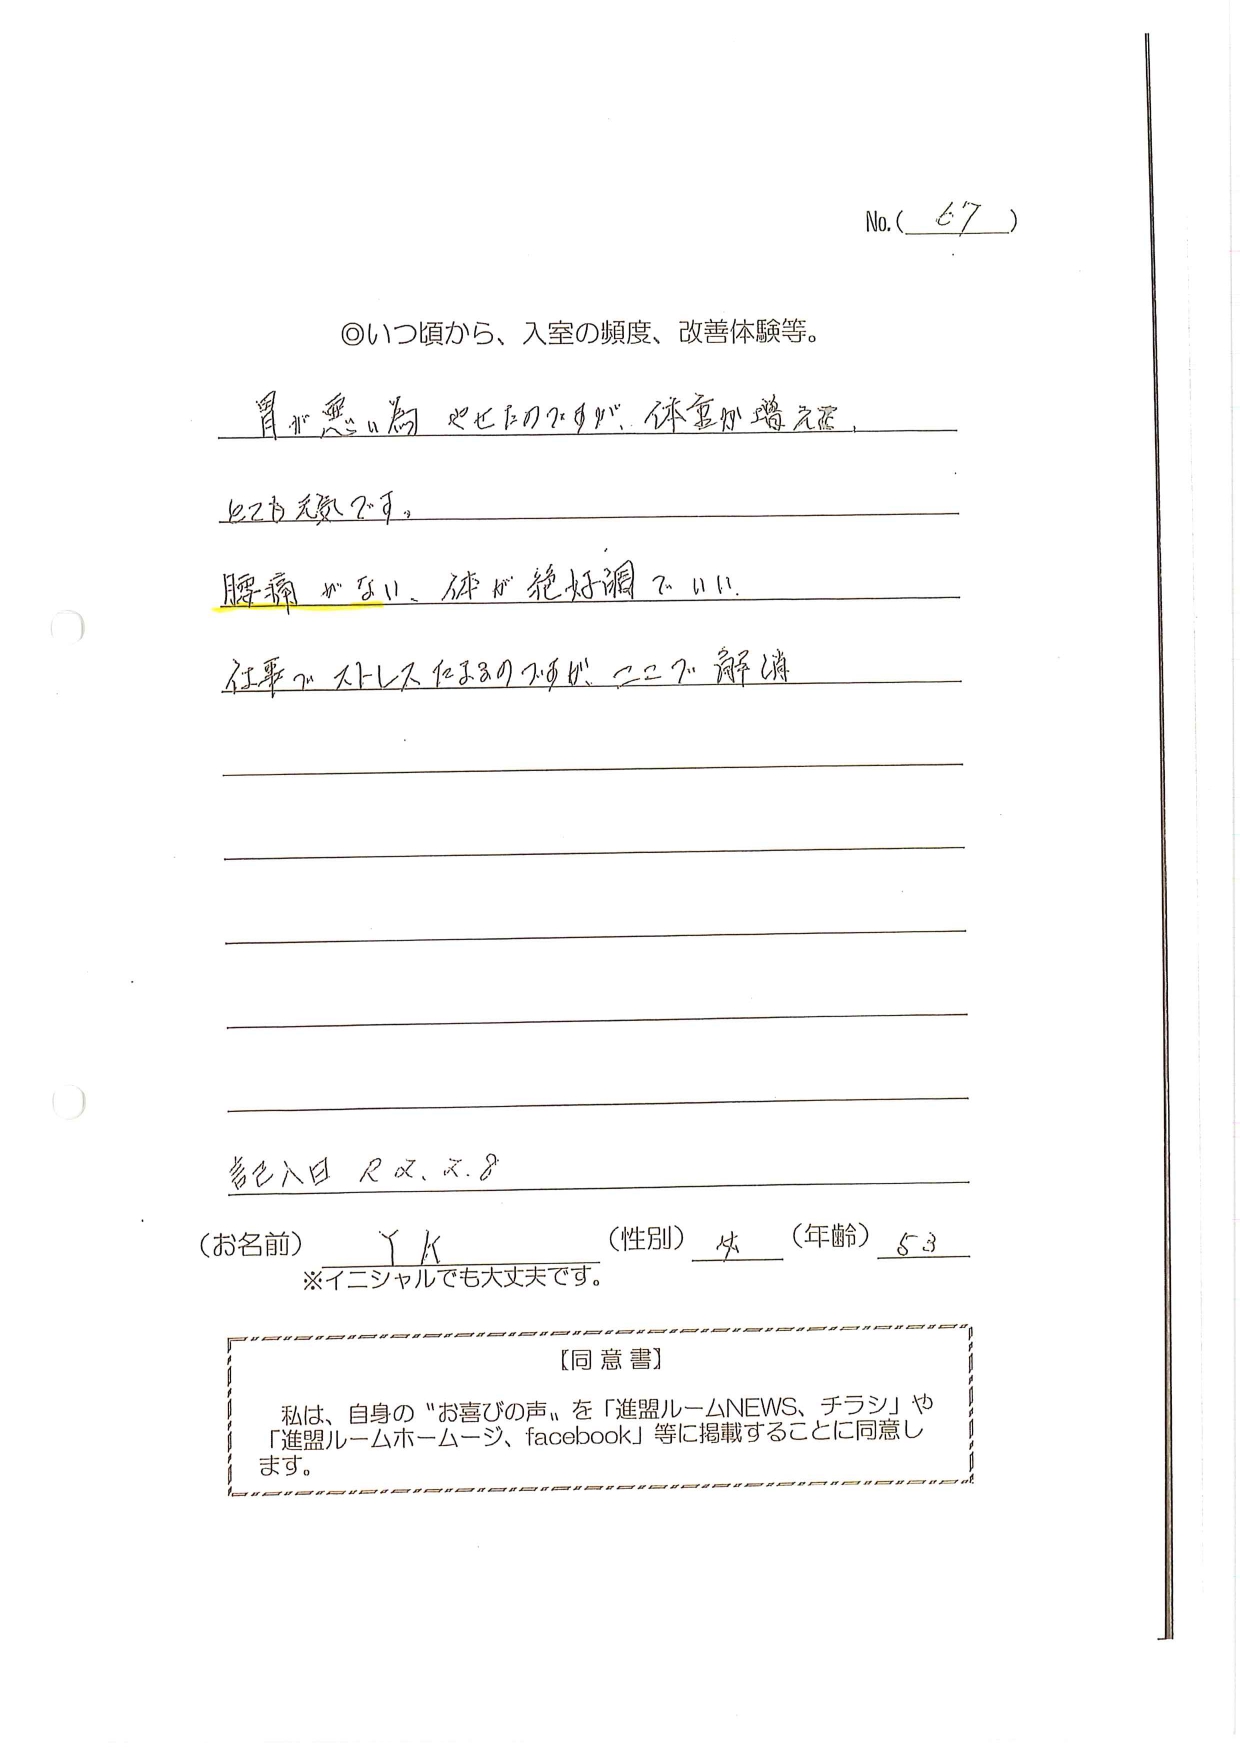 No.( 67 )
◎いつ頃から、入室の頻度、改善体験等。
胃が悪い為 やせたのですが、体重が増えた、
とても元気です。
腰痛がない、体が絶好調でいい
仕事でストレスたまるのですが、ここで解消
記入日 R2.2.8
(お名前) YK (性別) 女 (年齢) 53
※イニシャルでも大丈夫です。
【同意書】
私は、自身の〝お喜びの声〟を「進盟ルームNEWS、チラシ」や
「進盟ルームホームージ、facebook」等に掲載することに同意し
ます。